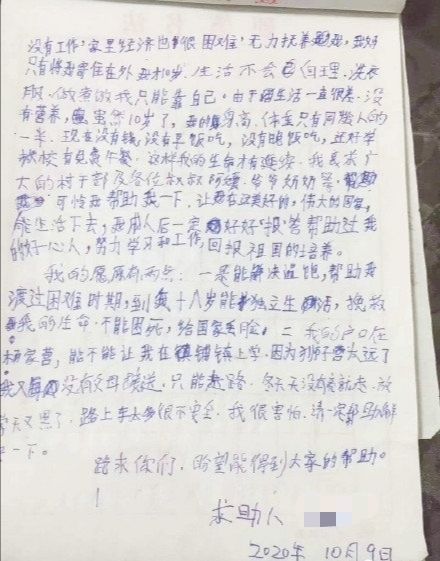 没有工作,家里经济也很困难,无力抚养我,我好
只有将我寄住在外 我才10岁,生活不会自理,洗衣
服,做煮的我只能靠自己。由于生活一直很差,没
有营养,虽然10岁了,我的身高、体重只有同龄人的
一半,现在没有钱,没有早饭吃,没有晚饭吃,还好学
校有免费午餐,这样我的生命才有延续,我恳求广
大的村干部及各位叔叔阿姨、爷爷奶奶等
可怜我帮助我一下,让我在这美好的,伟大的国家,
能生活下去,我成人后一定好好报答帮助过我
的好心人,努力学习和工作,回报祖国的培养。
我的愿原有两点:一是能解决温饱,帮助我
渡过困难时期,到我十八岁能独立生活,挽救
我的生命,不能困死,给国家丢脸,二 我的户口在
杨家营,能不能让我在镇上学,因为狮子营太远了
我又没有父母接送,只能走路,冬天天没亮就走,放
学天又黑了,路上车太多很不安全,我很害怕,请一定帮助解
一下。
跪求你们,盼望能得到大家的帮助。
求助人
2020年 10月9日